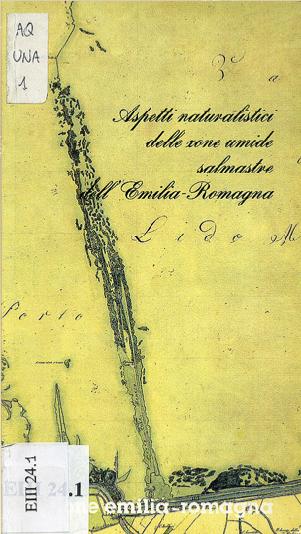 AQ
UNA
1
Aspetti naturalistici
delle zone umide
salmastre
dell'Emilia-Romagna
Lido M
Porto
EIII 24.1
24.1
one emilia-romagna